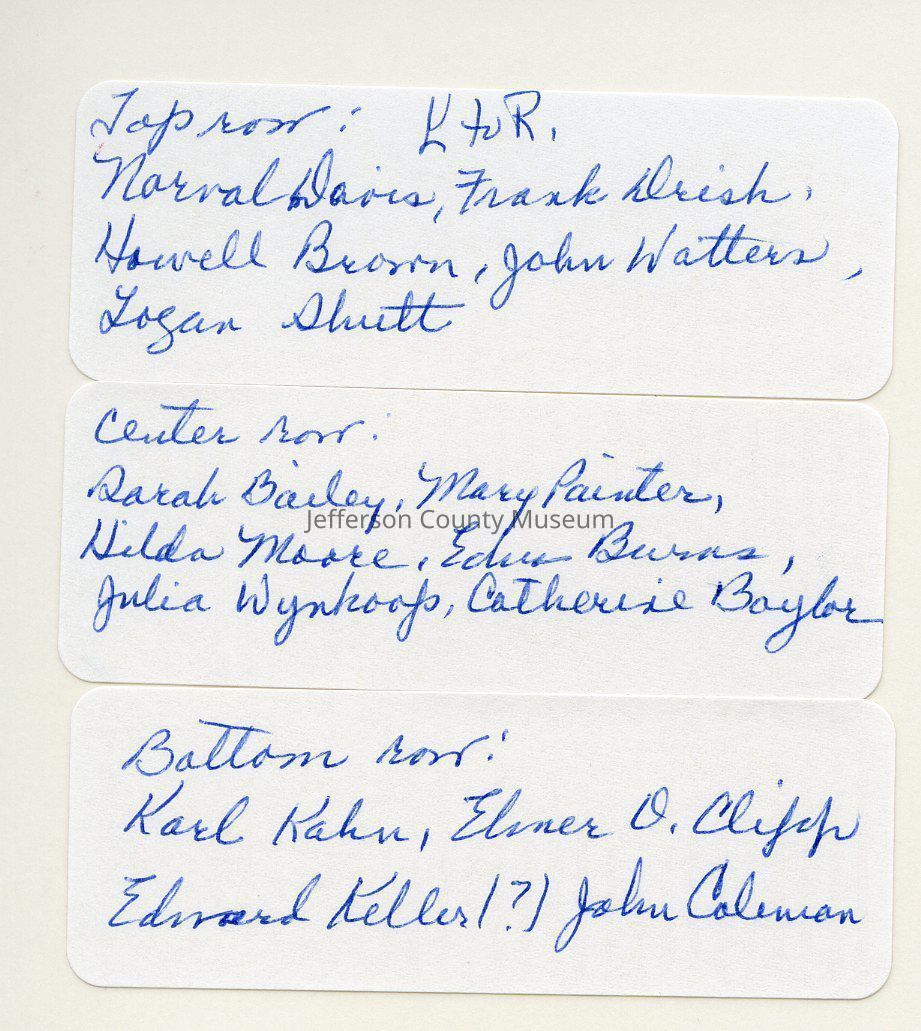 Top row : L to R.
Norval Davis, Frank Drish,
Howell Brown, John Watters,
Logan Shutt
Center row:
Sarah Bailey, Mary Painter,
Jefferson County Museum
Hilda Moore, Edna Burns,
Julia Wynkoop, Catherine Baylor
Bottom row:
Karl Kahn, Elmer O. Clipp
Edward Keller(?) John Coleman